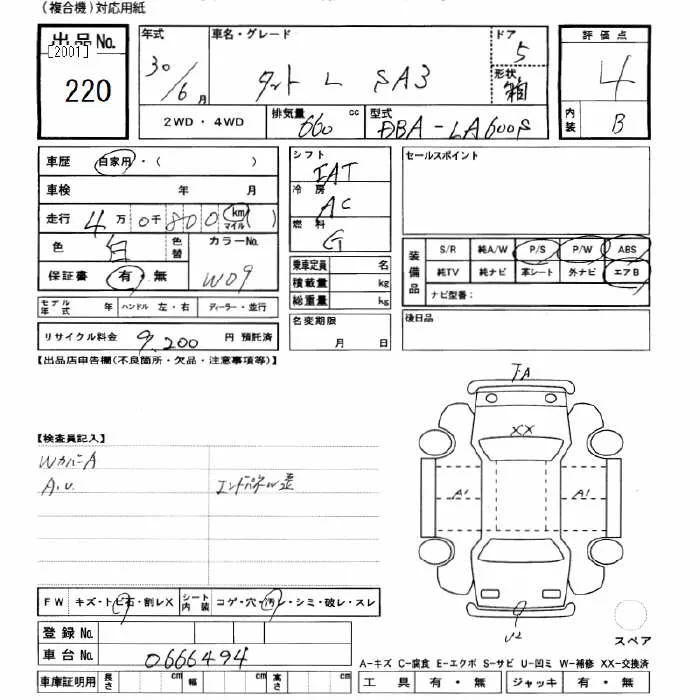 (複合機)対応用紙
出品No.
[2001]
220
年式
30/6月
車名・グレード
タント L SA3
ドア
5
形状
箱
評価点
4
内装
B
2WD・4WD
排気量
660 cc
型式
DBA-LA600S
車歴 自家用・( )
車検 年 月
走行 4万0千800 km マイル ( )
色 白 色替
カラーNo.
W09
保証書 有・無
モデル年式 年 ハンドル 左・右 ディーラー・並行
リサイクル料金 9,200円 預託済
シフト
IAT
冷房
AC
燃料
G
乗車定員 名
積載量 kg
総重量 kg
名変期限
月 日
セールスポイント
装備品
S/R 純A/W P/S P/W ABS
純TV 純ナビ 革シート 外ナビ エアB
ナビ型番:
後日品
【出品店申告欄(不良箇所・欠品・注意事項等)】
【検査員記入】
Wカバー A
A.U.
エンドパネルW歪
FW キズ・トビ石・割レX シート内装 コゲ・穴・汚レ・シミ・破レ・スレ
登録No.
車台No. 0666494
車庫証明用 長さ cm 幅 cm 高さ cm
FA
XX
A1 A1
U2
スペア
A-キズ C-腐食 E-エクボ S-サビ U-凹ミ W-補修 XX-交換済
工具 有・無 ジャッキ 有・無